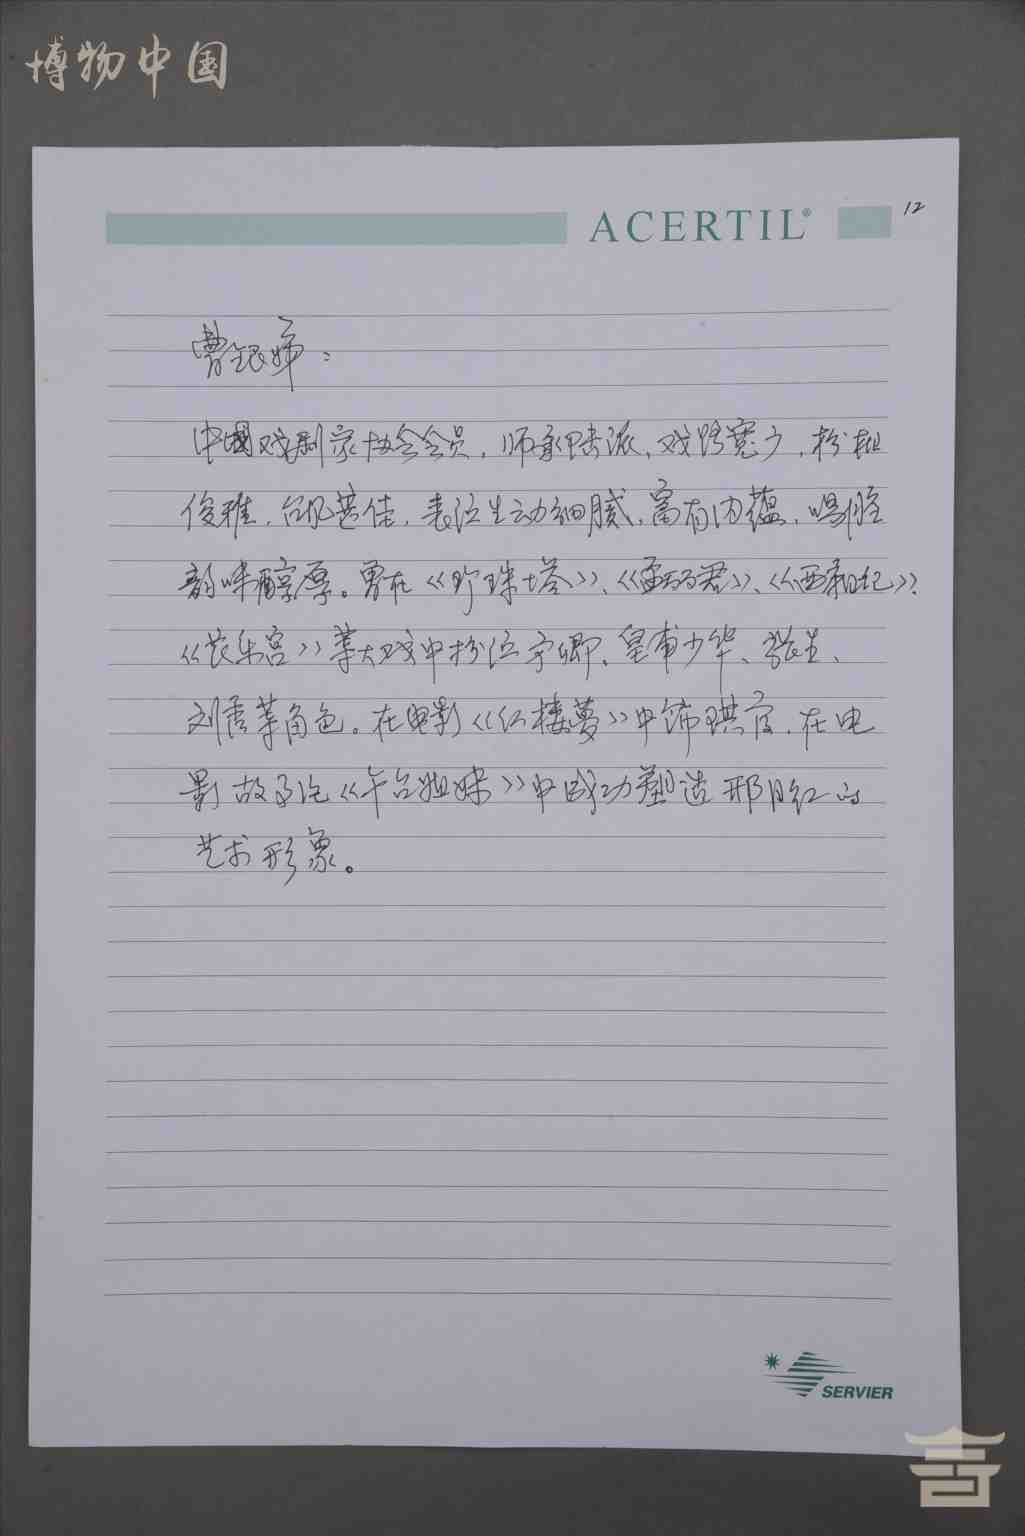 博物中国
ACERTIL®
12
曹银娣：
中国戏剧家协会会员，师承陆派，戏路宽广，扮相
俊雅，台风甚佳，表演生动细腻，富有内蕴，唱腔
韵味醇厚。曾在《珍珠塔》、《孟丽君》、《西厢记》、
《长乐宫》等大戏中扮演方卿、皇甫少华、张生、
刘秀等角色。在电影《红楼梦》中饰琪官，在电
影故事片《舞台姐妹》中成功塑造邢月红的
艺术形象。
SERVIER